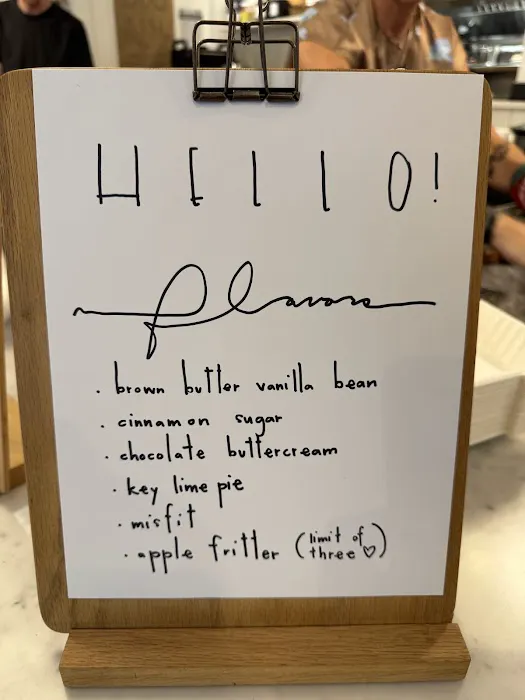 HELLO!
flavors
· brown butter vanilla bean
· cinnamon sugar
· chocolate buttercream
· key lime pie
· misfit
· apple fritter (limit of three ♡)